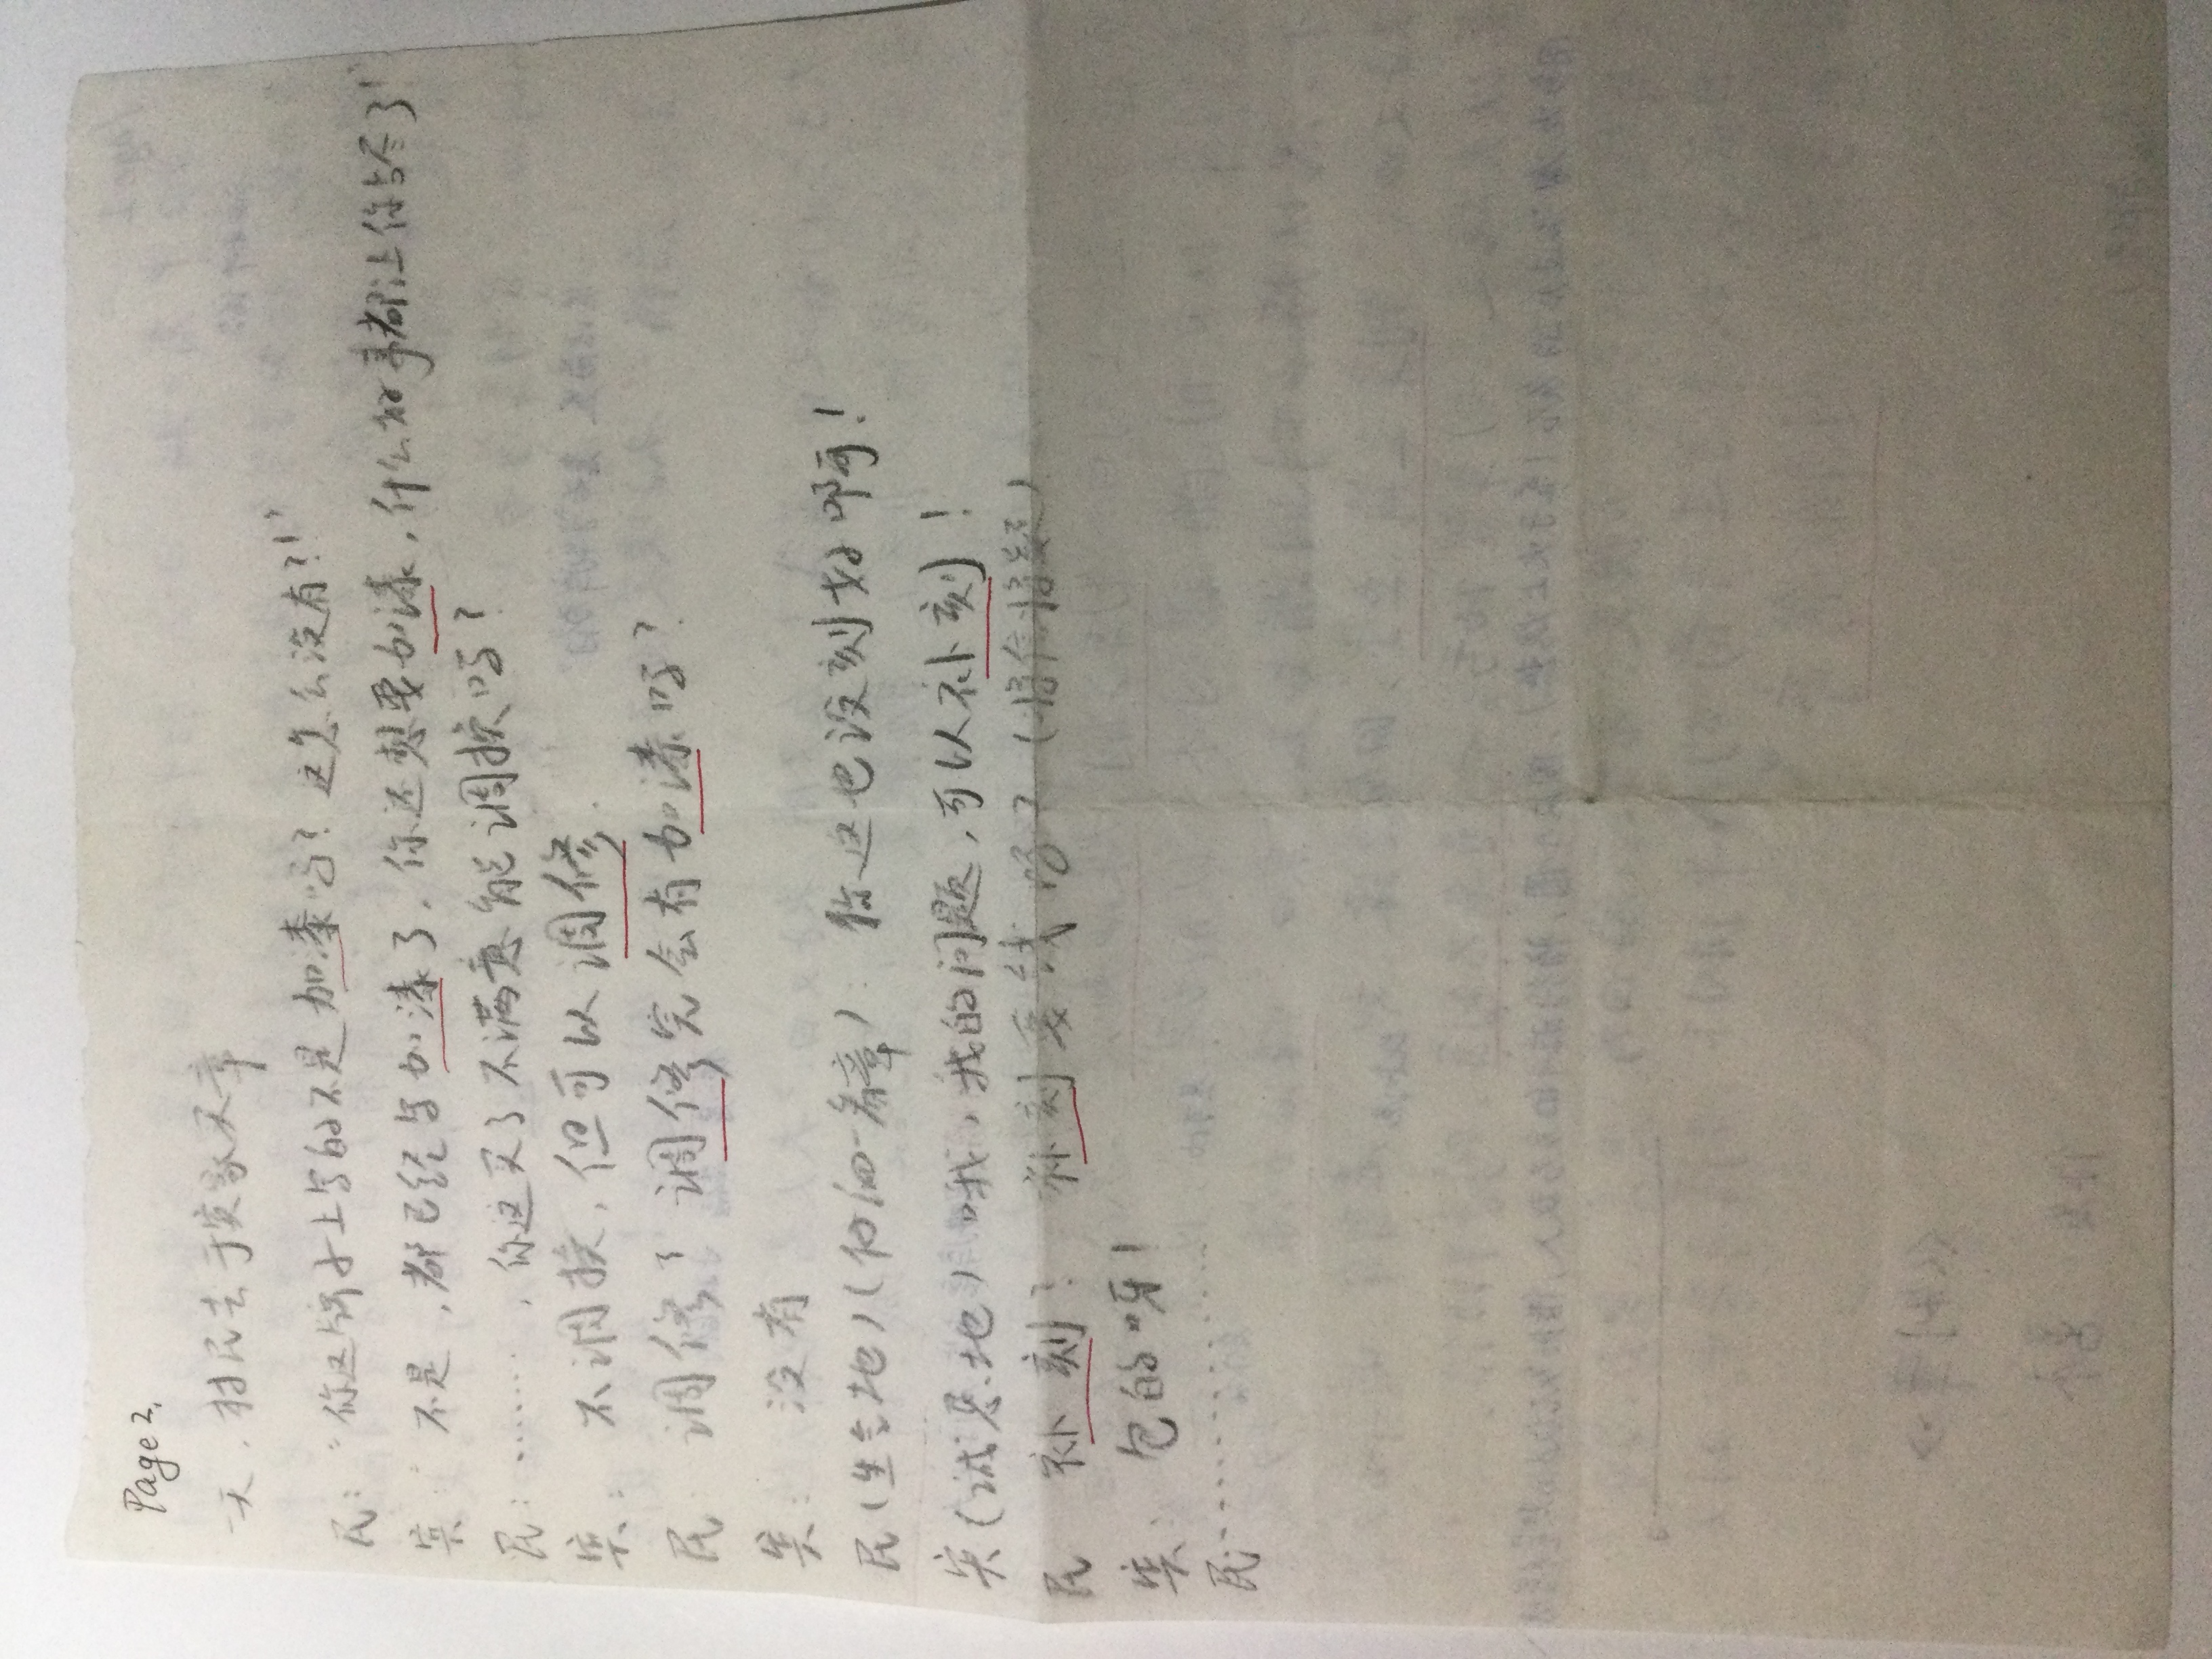 Page 2.
一天，村民去于实家买章
民："你这牌子上写的不是加漆吗？这怎么没有？！"
实："不是，都已经写加漆了，你还想要加漆，什么好事都让你占尽了！"
民：……，你这买了不满意能调换吗？
实：不调换，但可以调修.
民：调修？调修完会有加漆吗？
实：没有
民（生气地）（一看章）：你这也没刻好啊！
实（诚恳地）哦，我的问题，可以补刻！
民 补刻？补刻要钱吗？（将信将疑）
实：包的呀！
民……………